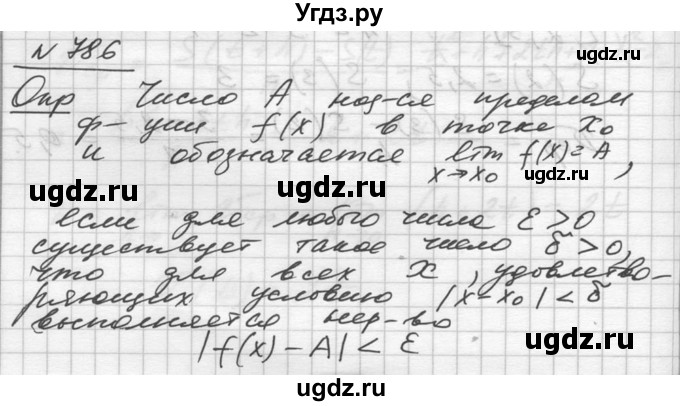 Угдз.ру
N 786
ugdz.ru
Опр Число A наз-ся пределом
ф-ции f(x) в точке x₀
ugdz.ru
и обозначается lim f(x)=A,
x→x₀
ugdz.ru ugdz.ru
если для любого числа ε>0
существует такое число δ>0,
ugdz.ru
что для всех x, удовлетво-
ряющих условию |x-x₀|<δ
ugdz.ru ugdz.ru
выполняется нер-во
|f(x)-A|<ε
ugdz.ru
ugdz.ru